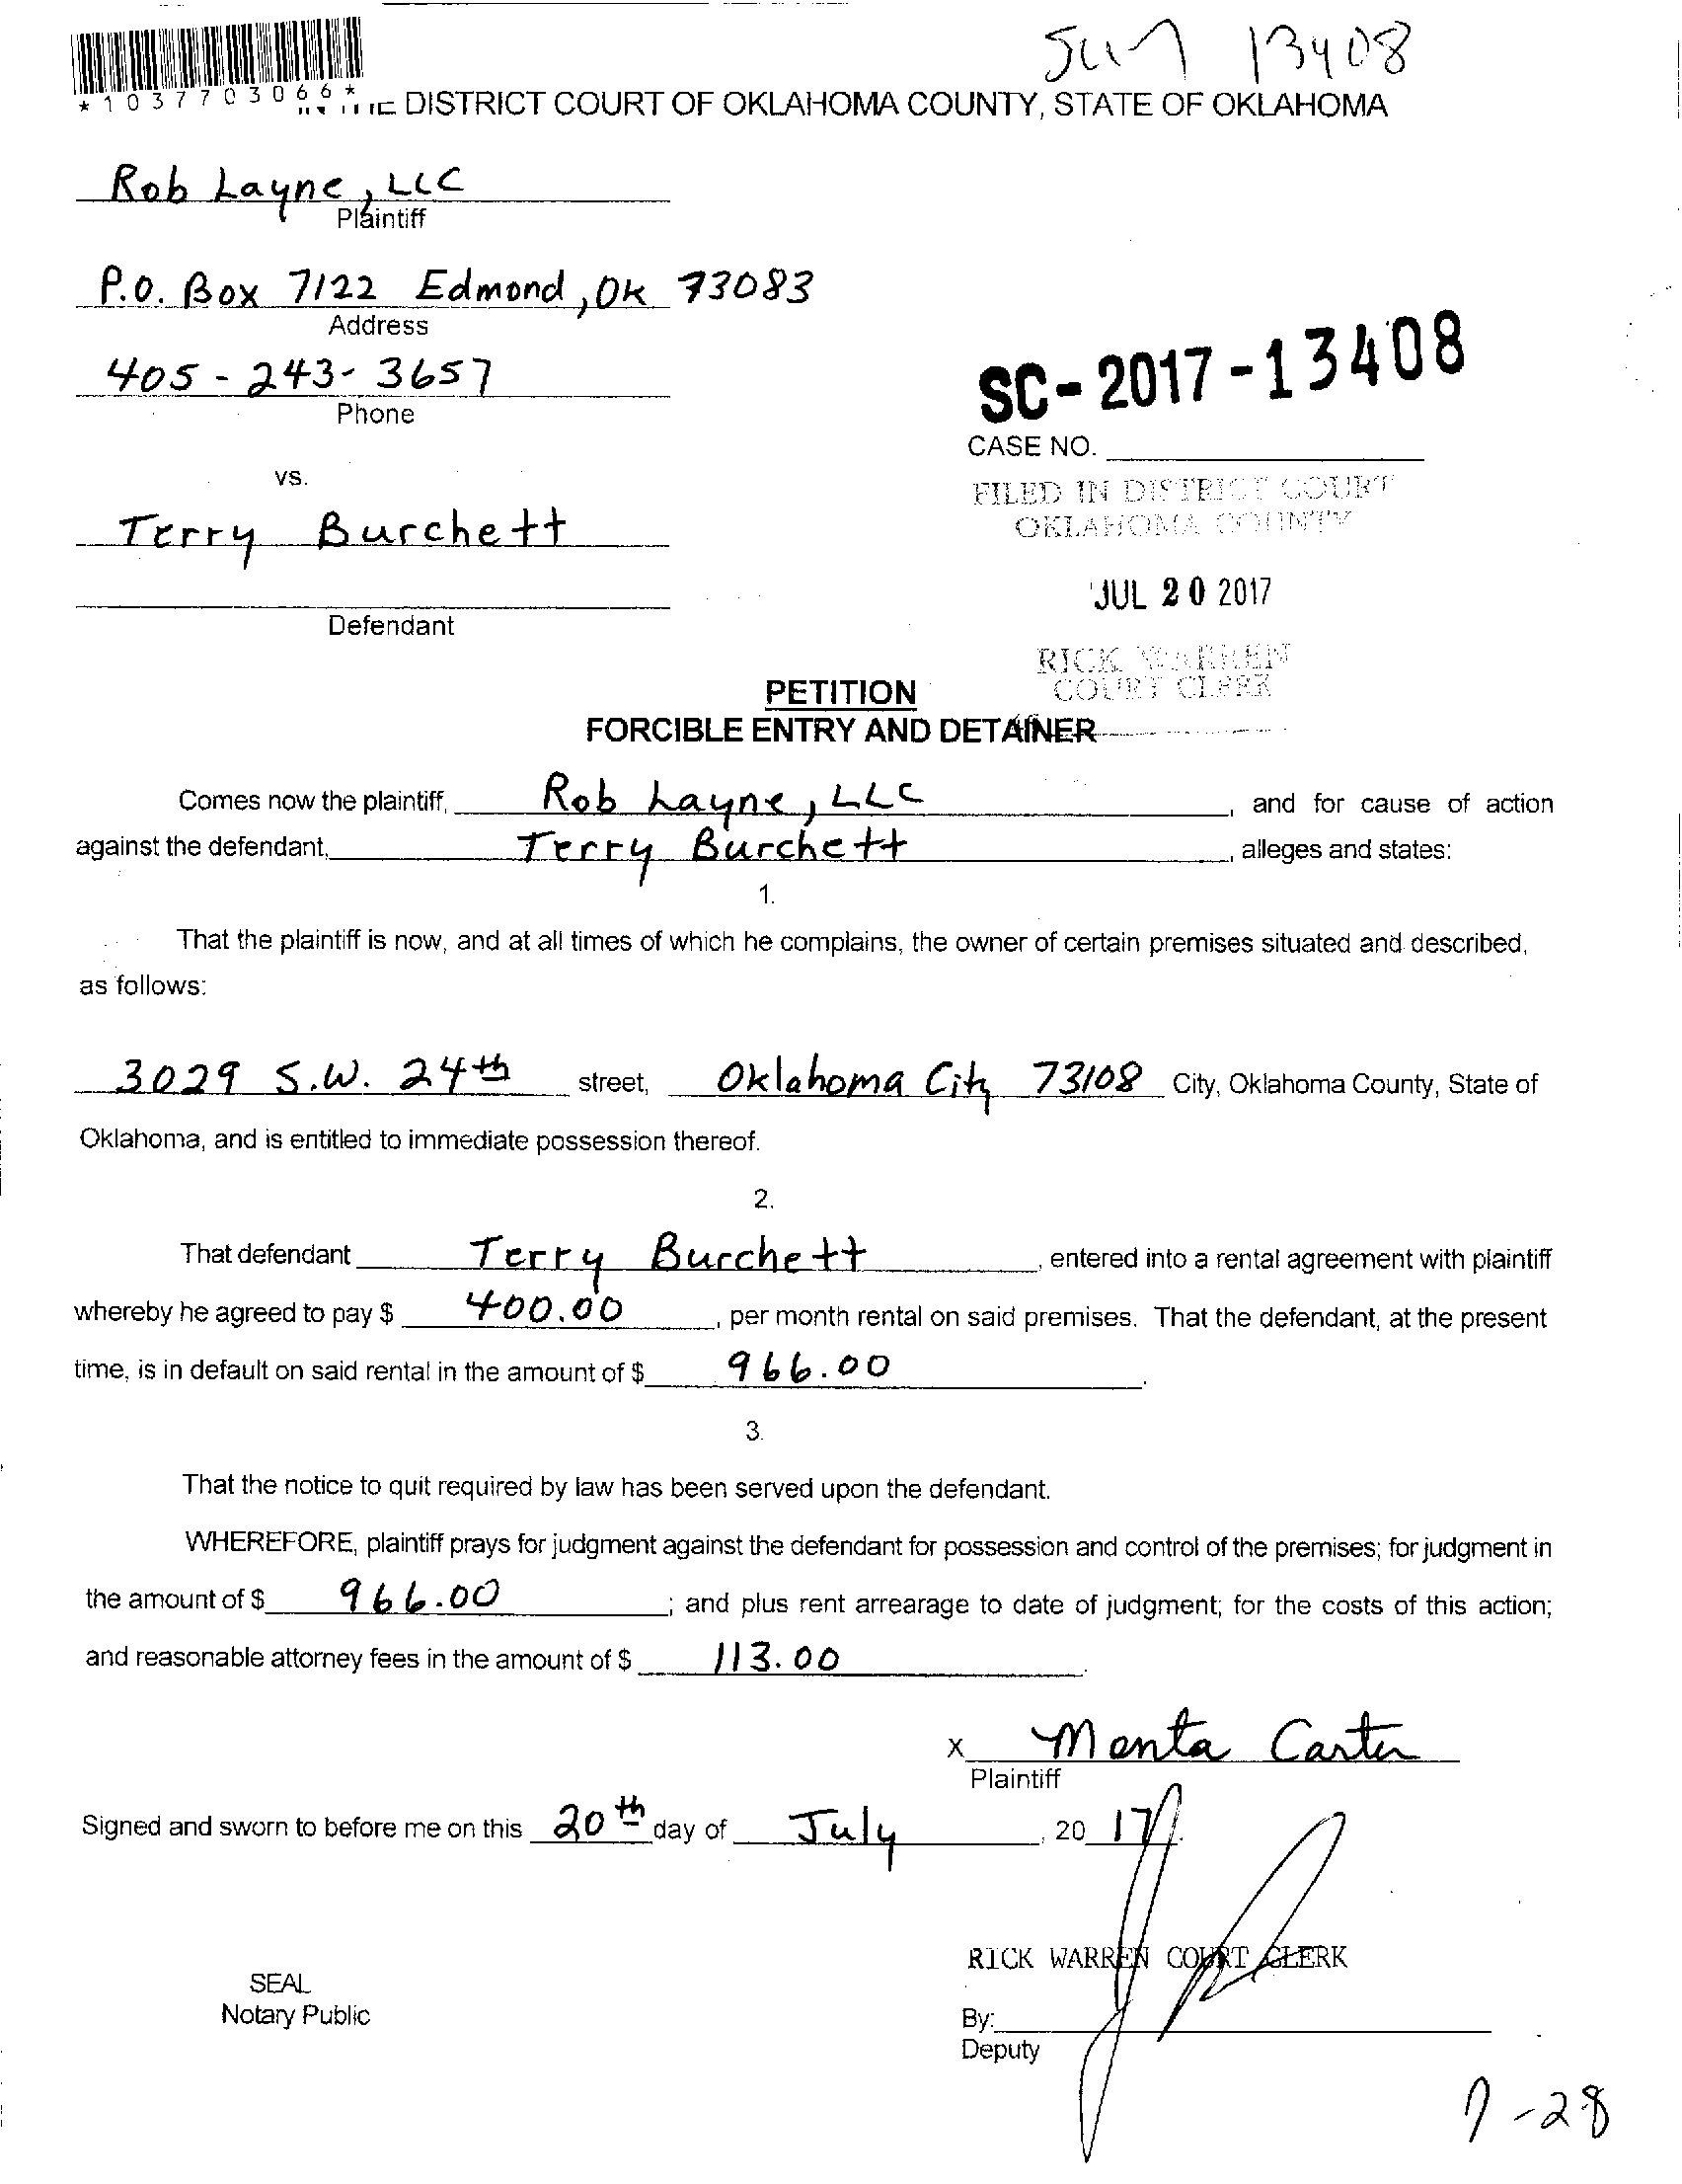 13408
*1037703066*
DISTRICT COURT OF OKLAHOMA COUNTY, STATE OF OKLAHOMA
Rob Layne, LLC
Plaintiff
P.O. Box 7122 Edmond, OK 73083
Address
405-243-3657
Phone
SC-2017-13408
CASE NO.
vs.
FILED IN DISTRICT COURT
OKLAHOMA COUNTY
Terry Burchett
JUL 20 2017
Defendant
RICK WARREN
COURT CLERK
PETITION
FORCIBLE ENTRY AND DETAINER
Comes now the plaintiff, Rob Layne, LLC, and for cause of action
against the defendant, Terry Burchett, alleges and states:
1.
That the plaintiff is now, and at all times of which he complains, the owner of certain premises situated and described,
as follows:
3029 S.W. 24th street, Oklahoma City 73108 City, Oklahoma County, State of
Oklahoma, and is entitled to immediate possession thereof.
2.
That defendant Terry Burchett, entered into a rental agreement with plaintiff
whereby he agreed to pay $ 400.00, per month rental on said premises. That the defendant, at the present
time, is in default on said rental in the amount of $ 966.00.
3.
That the notice to quit required by law has been served upon the defendant.
WHEREFORE, plaintiff prays for judgment against the defendant for possession and control of the premises; for judgment in
the amount of $ 966.00; and plus rent arrearage to date of judgment; for the costs of this action;
and reasonable attorney fees in the amount of $ 113.00.
X Menta Carter
Plaintiff
Signed and sworn to before me on this 20th day of July, 2017.
RICK WARREN COURT CLERK
SEAL
Notary Public
By:
Deputy
7-28